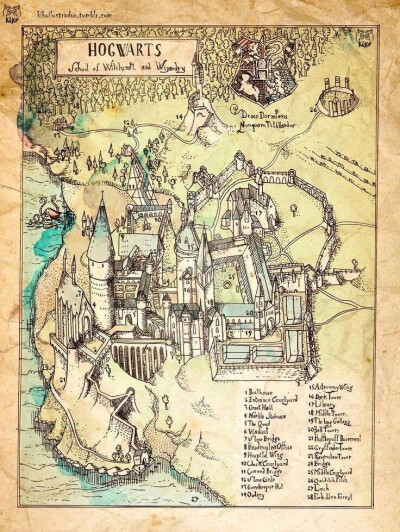 kikeilustrador.tumblr.com
HOGWARTS
School of Witchcraft and Wizardry
Draco Dormiens
Nunquam Titillandus
1 Boathouse
2 Entrance Courtyard
3 Great Hall
4 Marble Staircase
5 The Quad
6 Viaduct
8 Headmasters Office
9 Hospital Wing
10 Clock Courtyard
11 Covered Bridge
12 Stone Circle
13 Gamekeeper Hut
14 Owlery
15 Astronomy Wing
16 Dark Tower
17 Library
18 Middle Tower
19 The Long Gallery
20 Bell Towers
21 Hufflepuff Basement
22 Gryffindor Tower
23 Ravenclaw Tower
24 Bridge
25 Middle Courtyard
26 Quidditch Pitch
27 Loch
28 Forbidden Forest